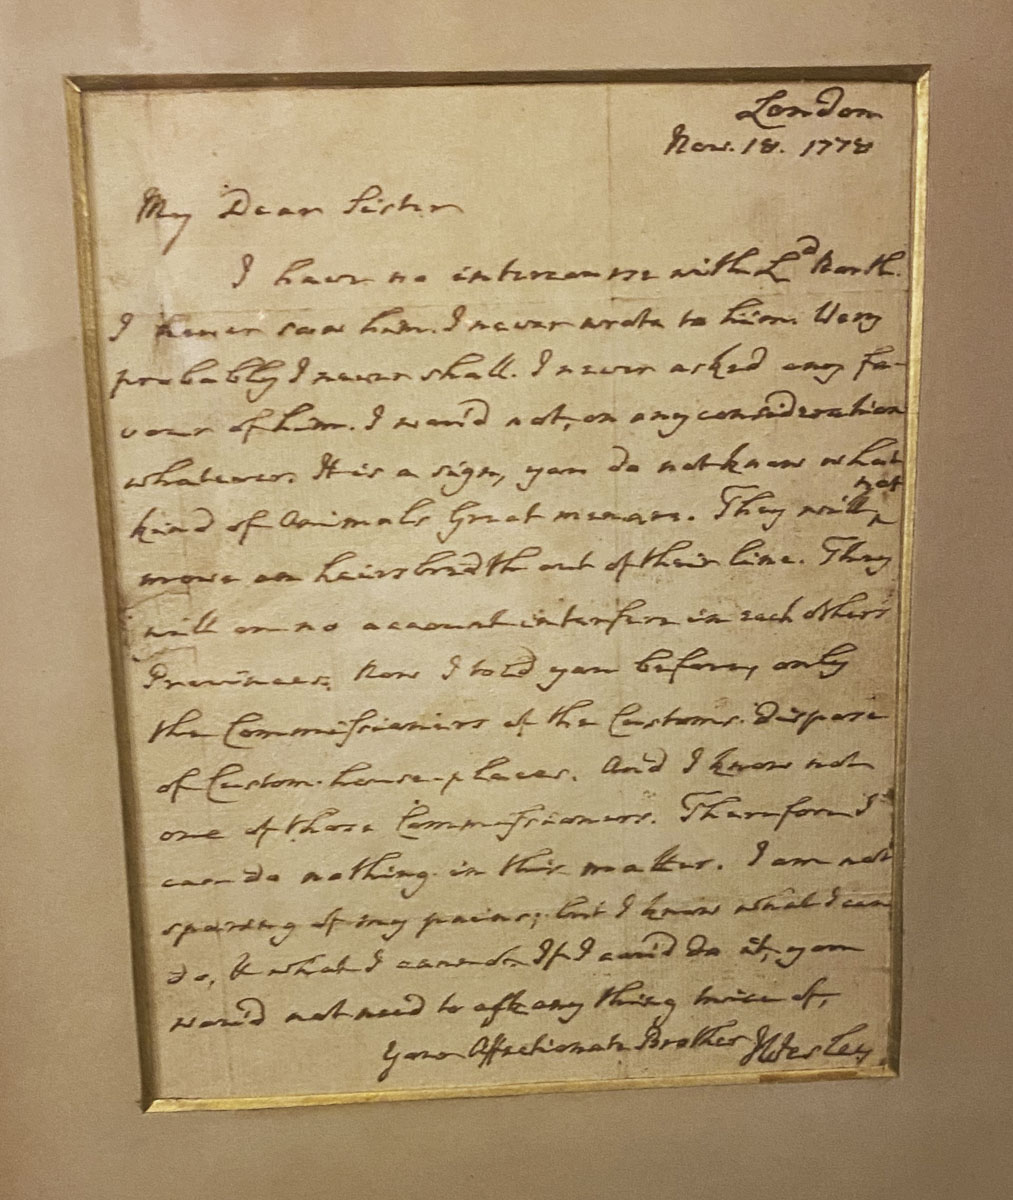 London
Nov. 18. 1778
My Dear Sister
I have no intercourse with Ld North.
I never saw him. I never wrote to him. Very
probably I never shall. I never asked any fa-
vour of him. I wou'd not, on any consideration
whatever. It is a sign, you do not know what
kind of Animals Great men are. They will not
move an hairsbredth out of their line. They
will on no account interfere in each others
Provinces. Now I told you before, only
the Commissioners of the Customs dispose
of Custom-house-places. And I know not
one of those Commissioners. Therefore I
can do nothing in this matter. I am not
sparing of my pains; but I know what I can
do, & what I cannot. If I cou'd do it, you
wou'd not need to ask any thing twice of,
Your Affectionate Brother JWesley